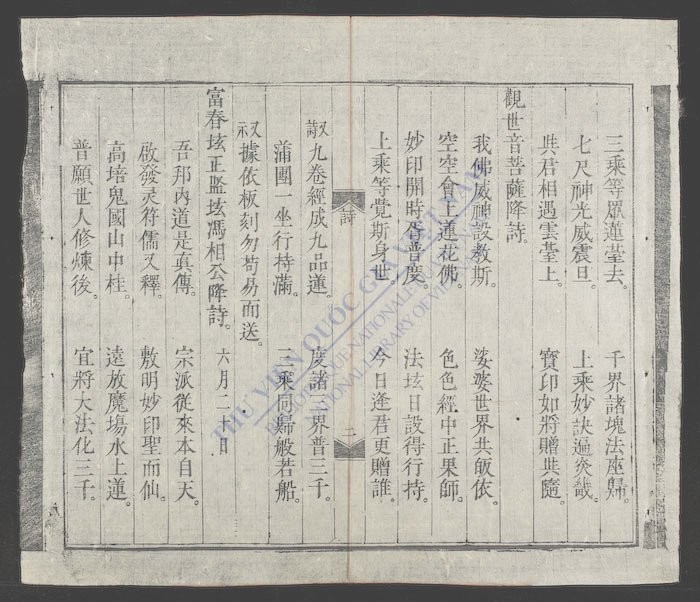 三乘等眾蓮䑓去。千界諸塊法座㱕。
七尺神光威震旦。上乘妙訣遍炎畿。
共君相遇雲䑓上。寶印如将贈共隨。
觀世音菩薩降詩。
我佛威神設教斯。娑婆世界共皈依。
空空會上蓮花佛。色色經中正果師。
妙印開時胥普度。法坛日設得行持。
上乘等覺斯身世。今日逢君更贈誰。
詩 二
㪚九卷經成九品蓮。度諸三界普三千。
蒲團一坐行持滿。三乘同歸般若船。
㪚據依板刻勿苟易而送。
富春坛正監坛馮相公降詩。六月二日
吾邦內道是真傳。宗派從來本自天。
啟發灵符儒又釋。敷明妙印聖而仙。
高培鬼國山中桂。遠放魔塲水上蓮。
普願世人修煉後。宜將大法化三千。
THƯ VIỆN QUỐC GIA VIỆT NAM
BIBLIOTHEQUE NATIONALE DU VIETNAM
NATIONAL LIBRARY OF VIETNAM